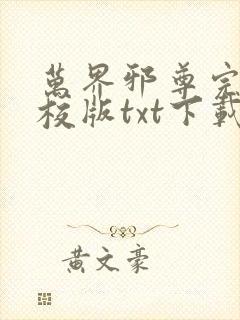 萬界邪尊完
校版txt下載
黃文豪